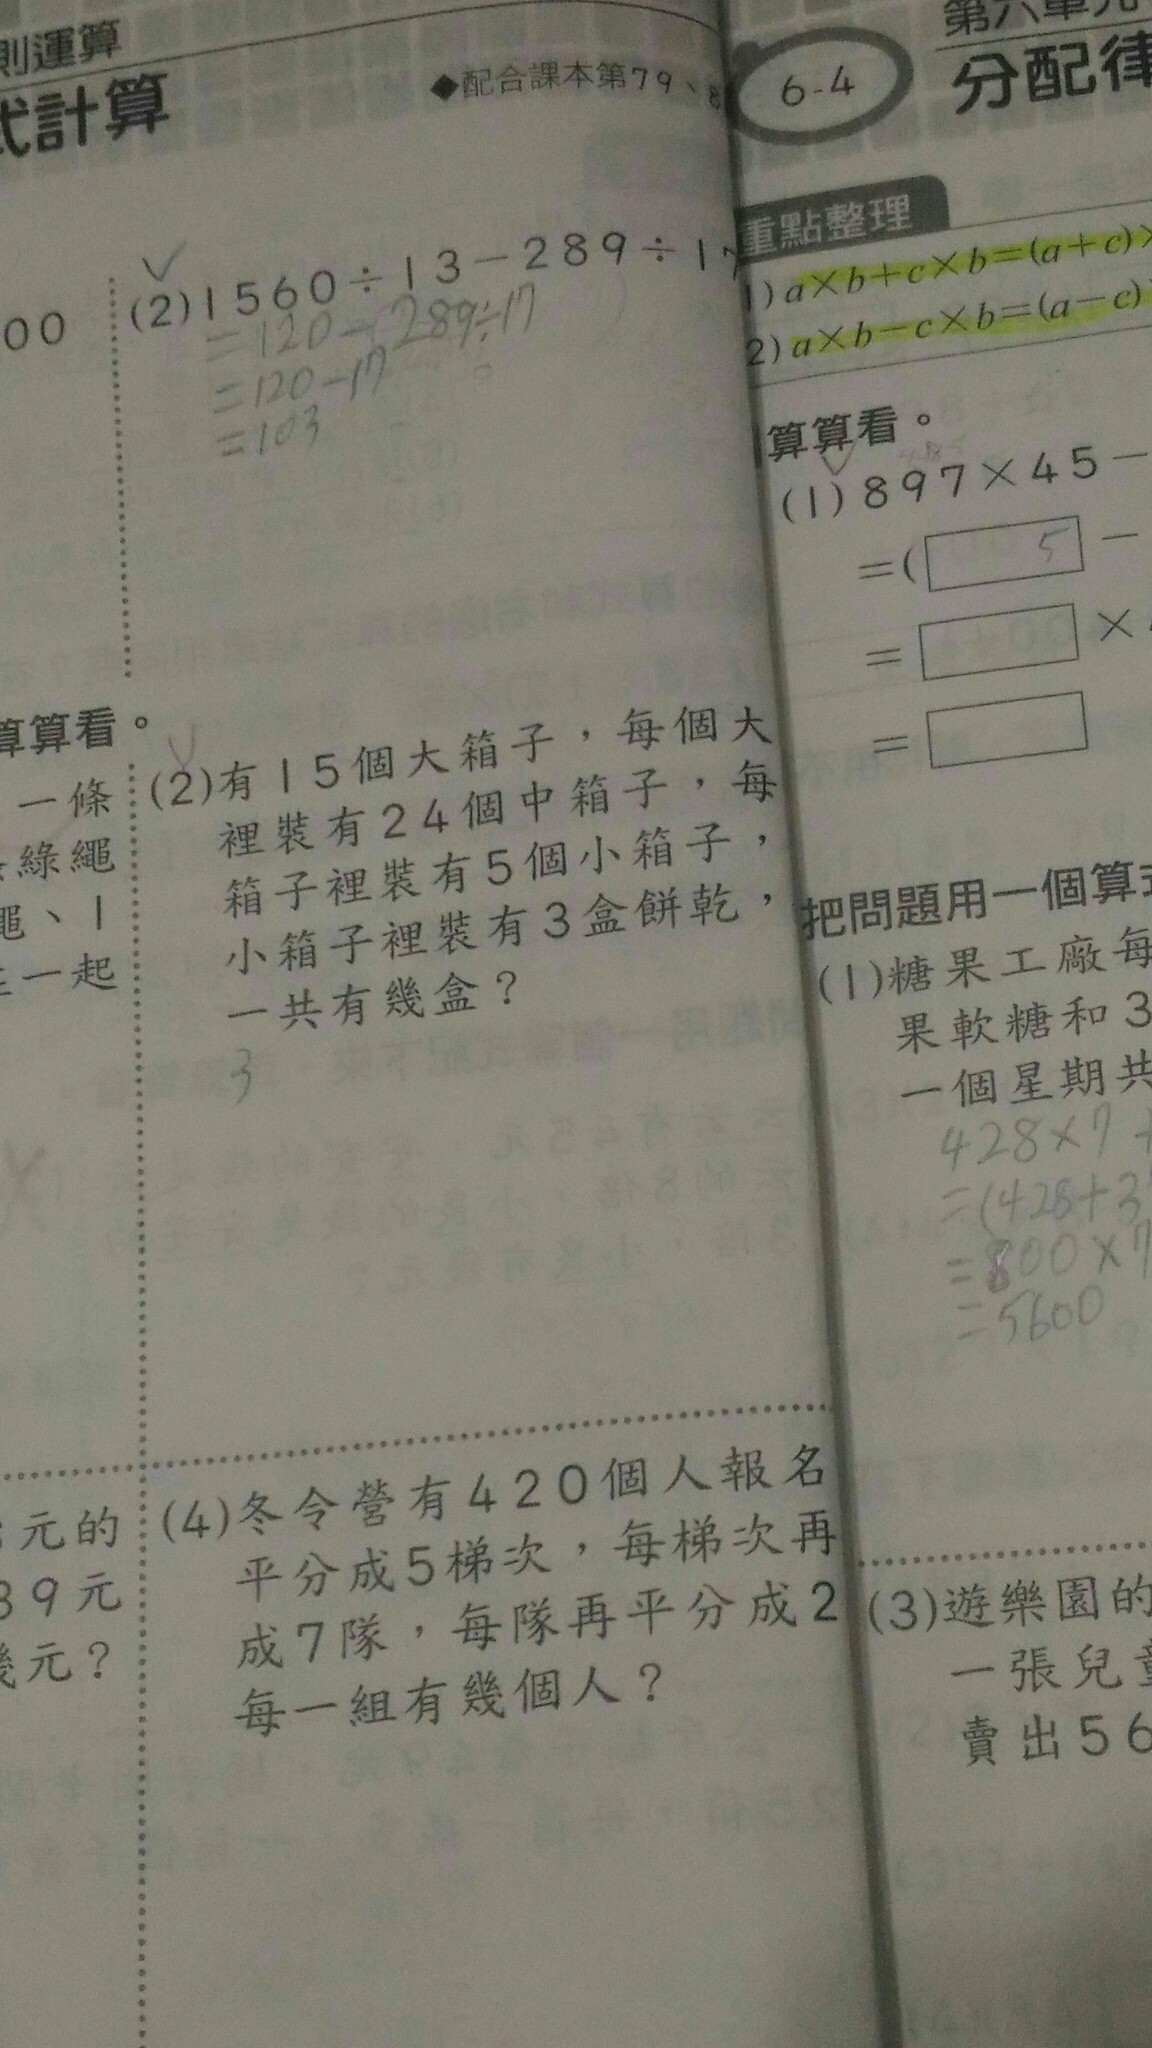 則運算
式計算
◆配合課本第79、8
00
(2)1560÷13－289÷17
=120-(289÷17)
=120-17
=103
算算看。
一條
綠繩
繩、1
一起
(2)有15個大箱子，每個大
裡裝有24個中箱子，每
箱子裡裝有5個小箱子，
小箱子裡裝有3盒餅乾，
一共有幾盒？
3
元的
39元
幾元？
(4)冬令營有420個人報名
平分成5梯次，每梯次再
成7隊，每隊再平分成2
每一組有幾個人？
6-4
第六單元
分配律
重點整理
1)a×b+c×b=(a+c)×
2)a×b−c×b=(a−c)×
算算看。
(1)897×45－
=( 5 －
= ×
=
把問題用一個算式
(1)糖果工廠每
果軟糖和3
一個星期共
428×7+
=(428+3
=800×7
=5600
(3)遊樂園的
一張兒童
賣出56